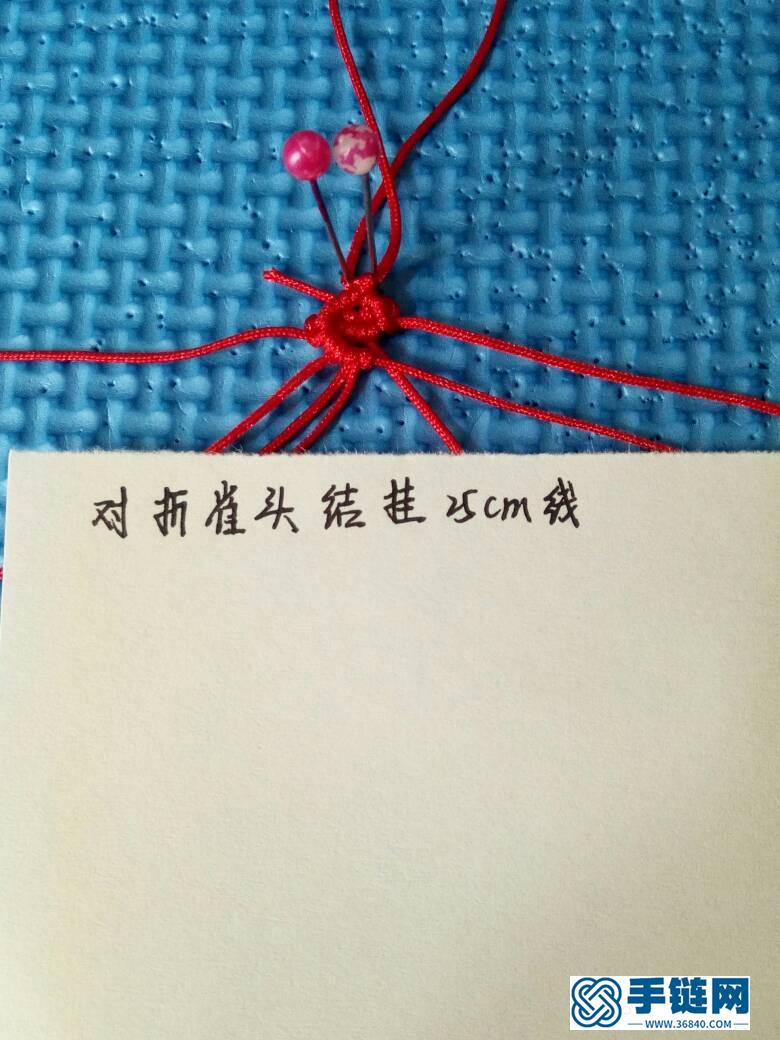 对折雀头结挂25cm线
手链网
WWW.36840.COM